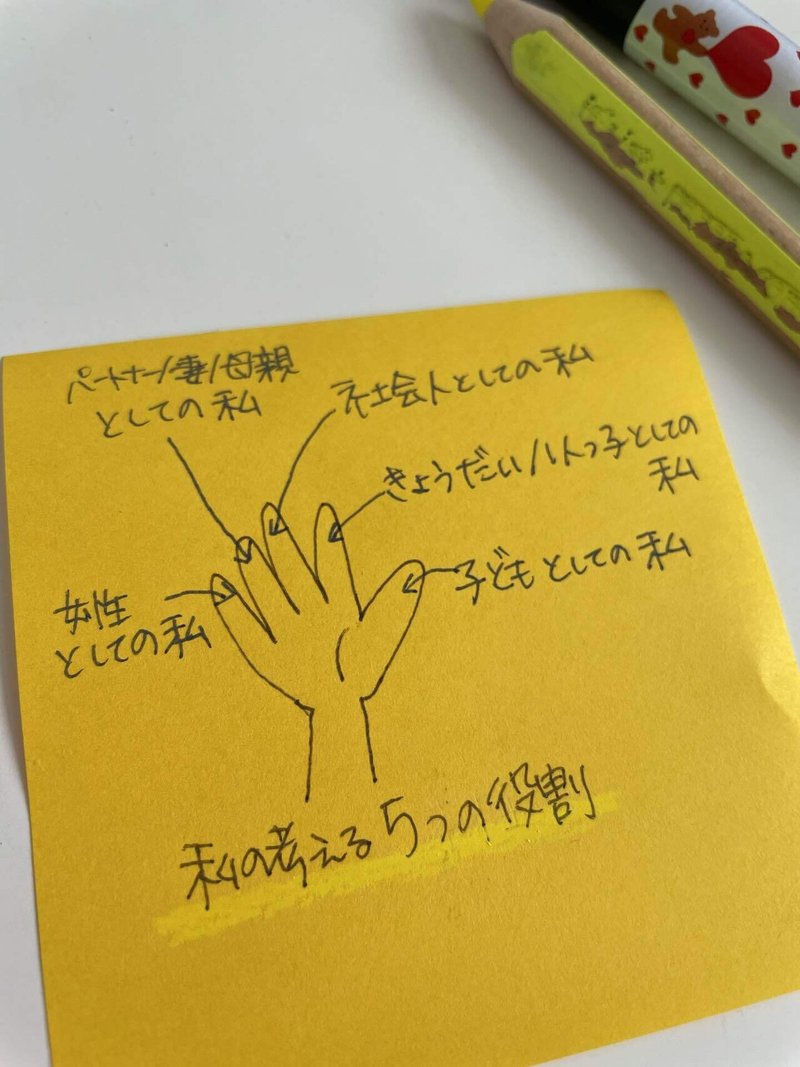 パートナー/妻/母親
としての私
社会人としての私
きょうだい/1人っ子としての
私
子どもとしての私
女性
としての私
私の考える5つの役割